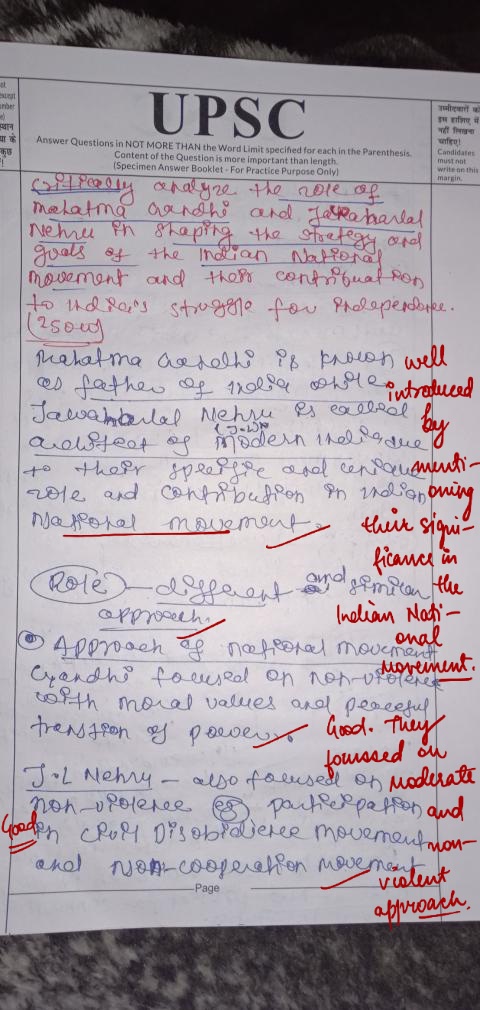 UPSC
Answer Questions in NOT MORE THAN the Word Limit specified for each in the Parenthesis.
Content of the Question is more important than length.
(Specimen Answer Booklet - For Practice Purpose Only)
उम्मीदवारों को
इस हाशिए में
नहीं लिखना
चाहिए।
Candidates
must not
write on this
margin.
critically analyze the role of
Mahatma Gandhi and Jawaharlal
Nehru in shaping the strategy and
goals of the Indian National
movement and their contribution
to India's struggle for independence.
(250w)
Mahatma Gandhi is known
as father of India while
Jawaharlal Nehru is called
(J.L.N)
architect of modern India due
to their specific and unique
role and contribution in Indian
National movement.
well
introduced
by
menti-
oning
their signi-
ficance in
the
Indian Nati-
onal
movement.
Role - different and similar
approach.
Approach of national movement
Gandhi focused on non-violence
with moral values and peaceful
transtion of power.
Good. They
foucssed on
moderate
and
non-
violent
approach.
J.L Nehry - also focused on
non-violence eg participation
in civil Disobidience movement
and Non-cooperation movement
Good
Page